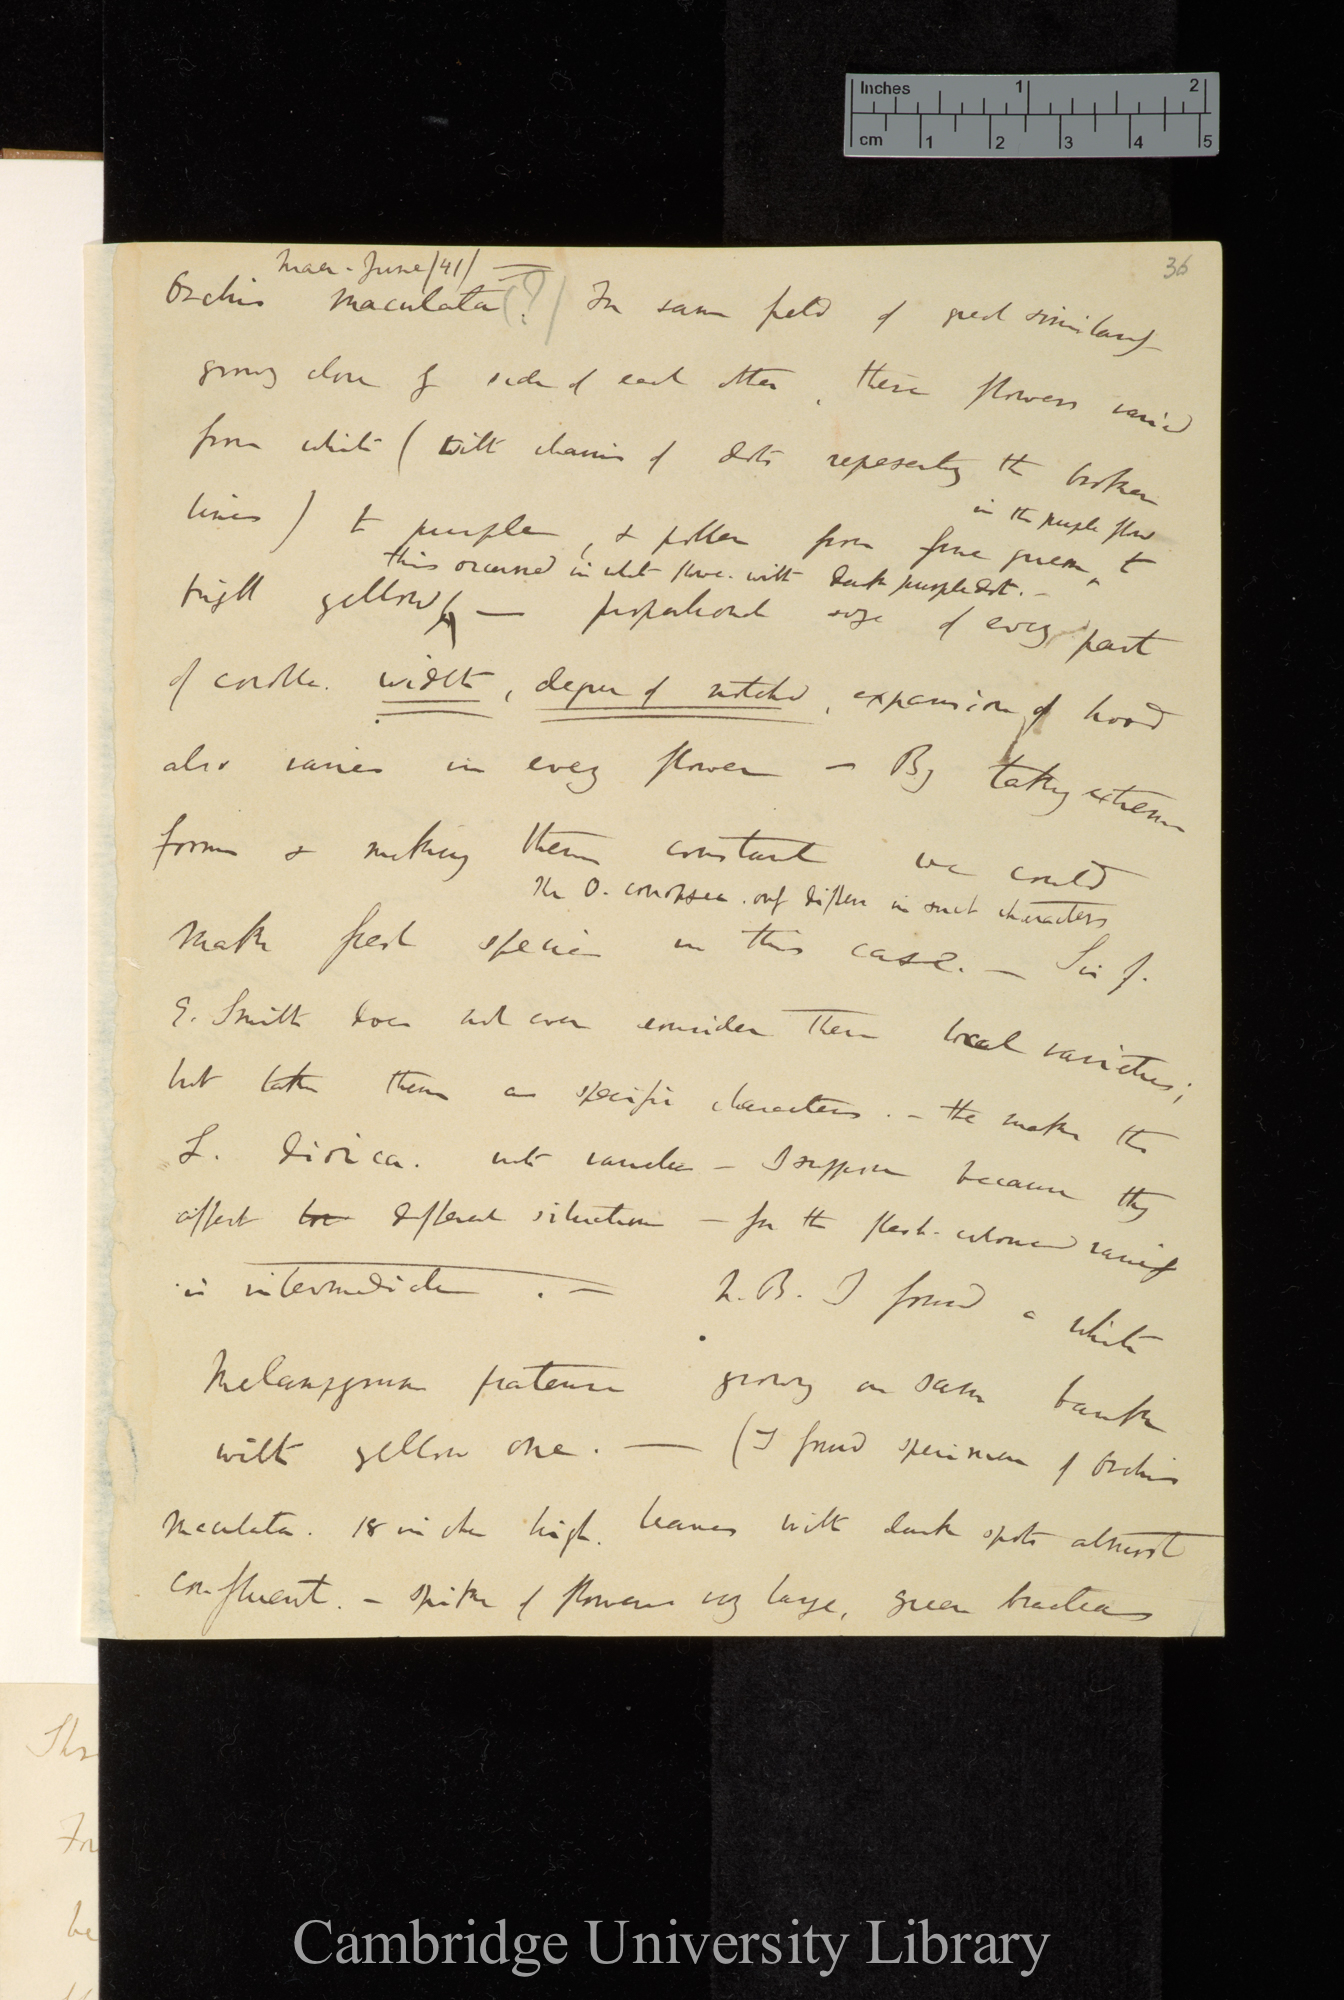 Inches 1 2
cm 1 2 3 4 5
36
Maer - June /41/
Orchis maculata (?) In same field of great similarity
growing close by side of each other, these flowers varied
from white (with chains of dots representing the broken
in the purple flower
lines) to purple, & pollen from fine green to
this occurred in white flower with dark purple dot. -
bright yellow — proportional size of every part
of corolla. width, degree of notched, expansion of hood
also varies in every flower — By taking extreme
forms & making them constant we could
The O. conopsea only differs in such characters
make fresh species in this case. — Sir J.
E. Smith does not even consider them local varieties;
but takes them as specific characters. - He makes the
L. dioica into varieties — I suppose because they
affect different situations — for the flesh-coloured variety
is intermediate. = N.B. I found a white
Melampyrum pratense growing on same bank
with yellow one. — (I found specimen of Orchis
maculata. 18 inches high. leaves with dark spots almost
confluent. - spike of flowers very large, green bracteas
Cambridge University Library